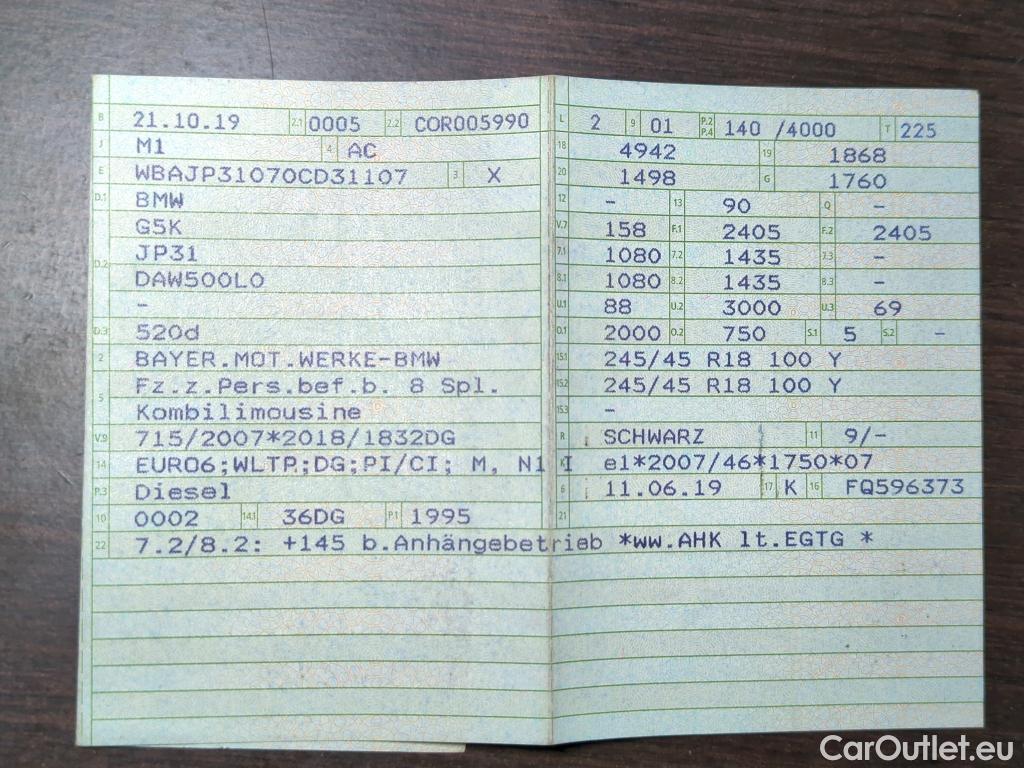 B 21.10.19 2.1 0005 2.2 COR005990
J M1 4 AC
E WBAJP31070CD31107 3 X
D.1 BMW
G5K
D.2 JP31
DAW500L0
-
D.3 520d
2 BAYER.MOT.WERKE-BMW
5 Fz.z.Pers.bef.b. 8 Spl.
Kombilimousine
V.9 715/2007*2018/1832DG
14 EURO6;WLTP;DG;PI/CI; M, N1 I
P.3 Diesel
10 0002 14.1 36DG P.1 1995
22 7.2/8.2: +145 b.Anhängebetrieb *ww.AHK lt.EGTG *
L 2 9 01 P.2 P.4 140 /4000 T 225
18 4942 19 1868
20 1498 G 1760
12 - 13 90 Q -
V.7 158 F.1 2405 F.2 2405
7.1 1080 7.2 1435 7.3 -
8.1 1080 8.2 1435 8.3 -
U.1 88 U.2 3000 U.3 69
O.1 2000 O.2 750 S.1 5 S.2 -
15.1 245/45 R18 100 Y
15.2 245/45 R18 100 Y
15.3 -
R SCHWARZ 11 9/-
K e1*2007/46*1750*07
6 11.06.19 17 K 16 FQ596373
21
CarOutlet.eu